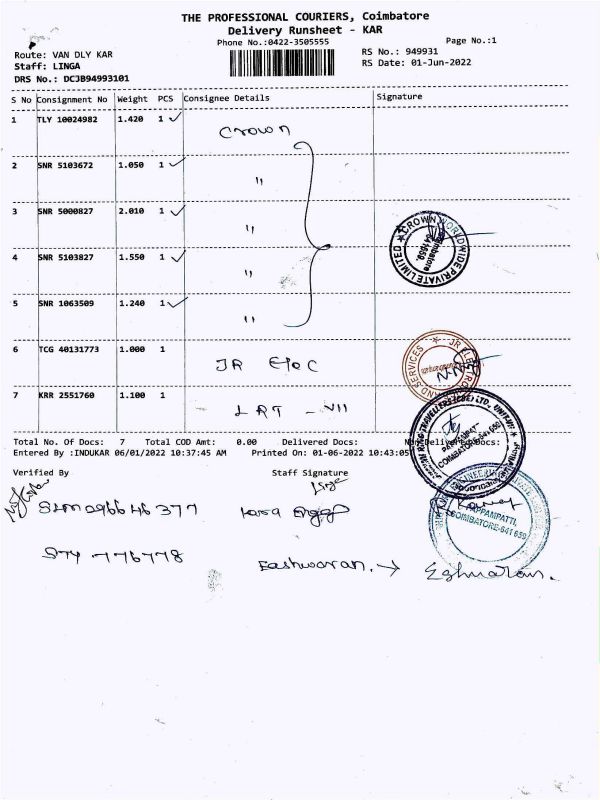 THE PROFESSIONAL COURIERS, Coimbatore
Delivery Runsheet - KAR
Phone No.:0422-3505555
Page No.:1
Route: VAN DLY KAR
Staff: LINGA
DRS No.: DCJB94993101
RS No.: 949931
RS Date: 01-Jun-2022
S No Consignment No Weight PCS Consignee Details Signature
1 TLY 10024982 1.420 1 Crown
2 SNR 5103672 1.050 1 "
3 SNR 5000827 2.010 1 "
4 SNR 5103827 1.550 1 "
5 SNR 1063509 1.240 1 "
CROWN WORLDWIDE PRIVATE LIMITED
Coimbatore
641659.
6 TCG 40131773 1.000 1 JR Elec
JR ELECTRO AND SERVICES
7 KRR 2551760 1.100 1 LRT - VII
Total No. Of Docs: 7 Total COD Amt: 0.00 Delivered Docs: Non Delivered Docs:
Entered By :INDUKAR 06/01/2022 10:37:45 AM Printed On: 01-06-2022 10:43:05
TRAVELLERS (CBE) LTD., UNIT-VII
PAPPAMPATTI
COIMBATORE-641 659
Verified By Staff Signature
PAPPAMPATTI,
COIMBATORE-641 659
Eashwaran. → Eshwaran.